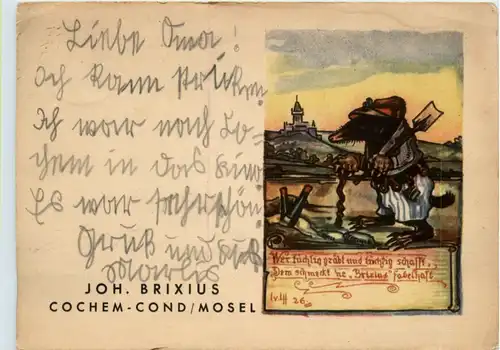 Liebe Oma!
Ich kann stricken
Ich war nach Co-
chem in das Kino
Es war sehr schön
Gruß und Kuß
Marlis
JOH. BRIXIUS
COCHEM-COND/MOSEL
Wer tüchtig gräbt und tüchtig schafft,
Dem schmeckt ne "Brixius" fabelhaft.
26